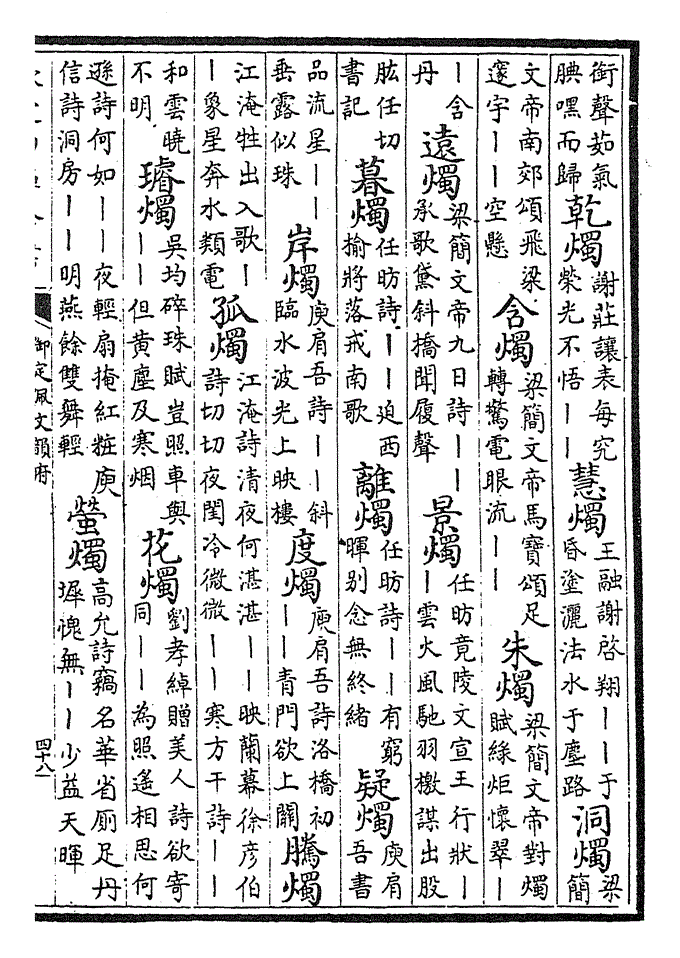 銜聲茹氣
腆嘿而歸
乾燭
謝莊讓表每究
榮光不悟——
慧燭
王融謝啓翔——于
昏塗灑法水于塵路
洞燭
梁
簡
文帝南郊頌飛梁
邃宇——空懸
含燭
梁簡文帝馬寶頌足
轉驚電眼流——
朱燭
梁簡文帝對燭
賦綠炬懷翠—
—含
丹
遠燭
梁簡文帝九日詩——
承歌黛斜橋聞履聲
景燭
任昉竟陵文宣王行狀—
—雲火風馳羽檄謀出股
肱任切
書記
暮燭
任昉詩——迫西
榆將落戒南歌
離燭
任昉詩——有窮
暉别念無終緒
疑燭
庾肩
吾書
品流星——
垂露似珠
岸燭
庾肩吾詩——斜
臨水波光上映樓
度燭
庾肩吾詩洛橋初
——青門欲上關
騰燭
江淹牲出入歌—
—象星奔水類電
孤燭
江淹詩清夜何湛湛——映蘭幕徐彦伯
詩切切夜閨冷微微——寒方干詩——
和雲曉
不明
璿燭
吳均碎珠賦豈照車與
——但黃塵及寒烟
花燭
劉孝綽贈美人詩欲寄
同——為照遙相思何
遜詩何如——夜輕扇掩紅粧庾
信詩洞房——明燕餘雙舞輕
螢燭
高允詩竊名華省厠足丹
墀愧無——少益天暉
御定佩文韻府
四十八